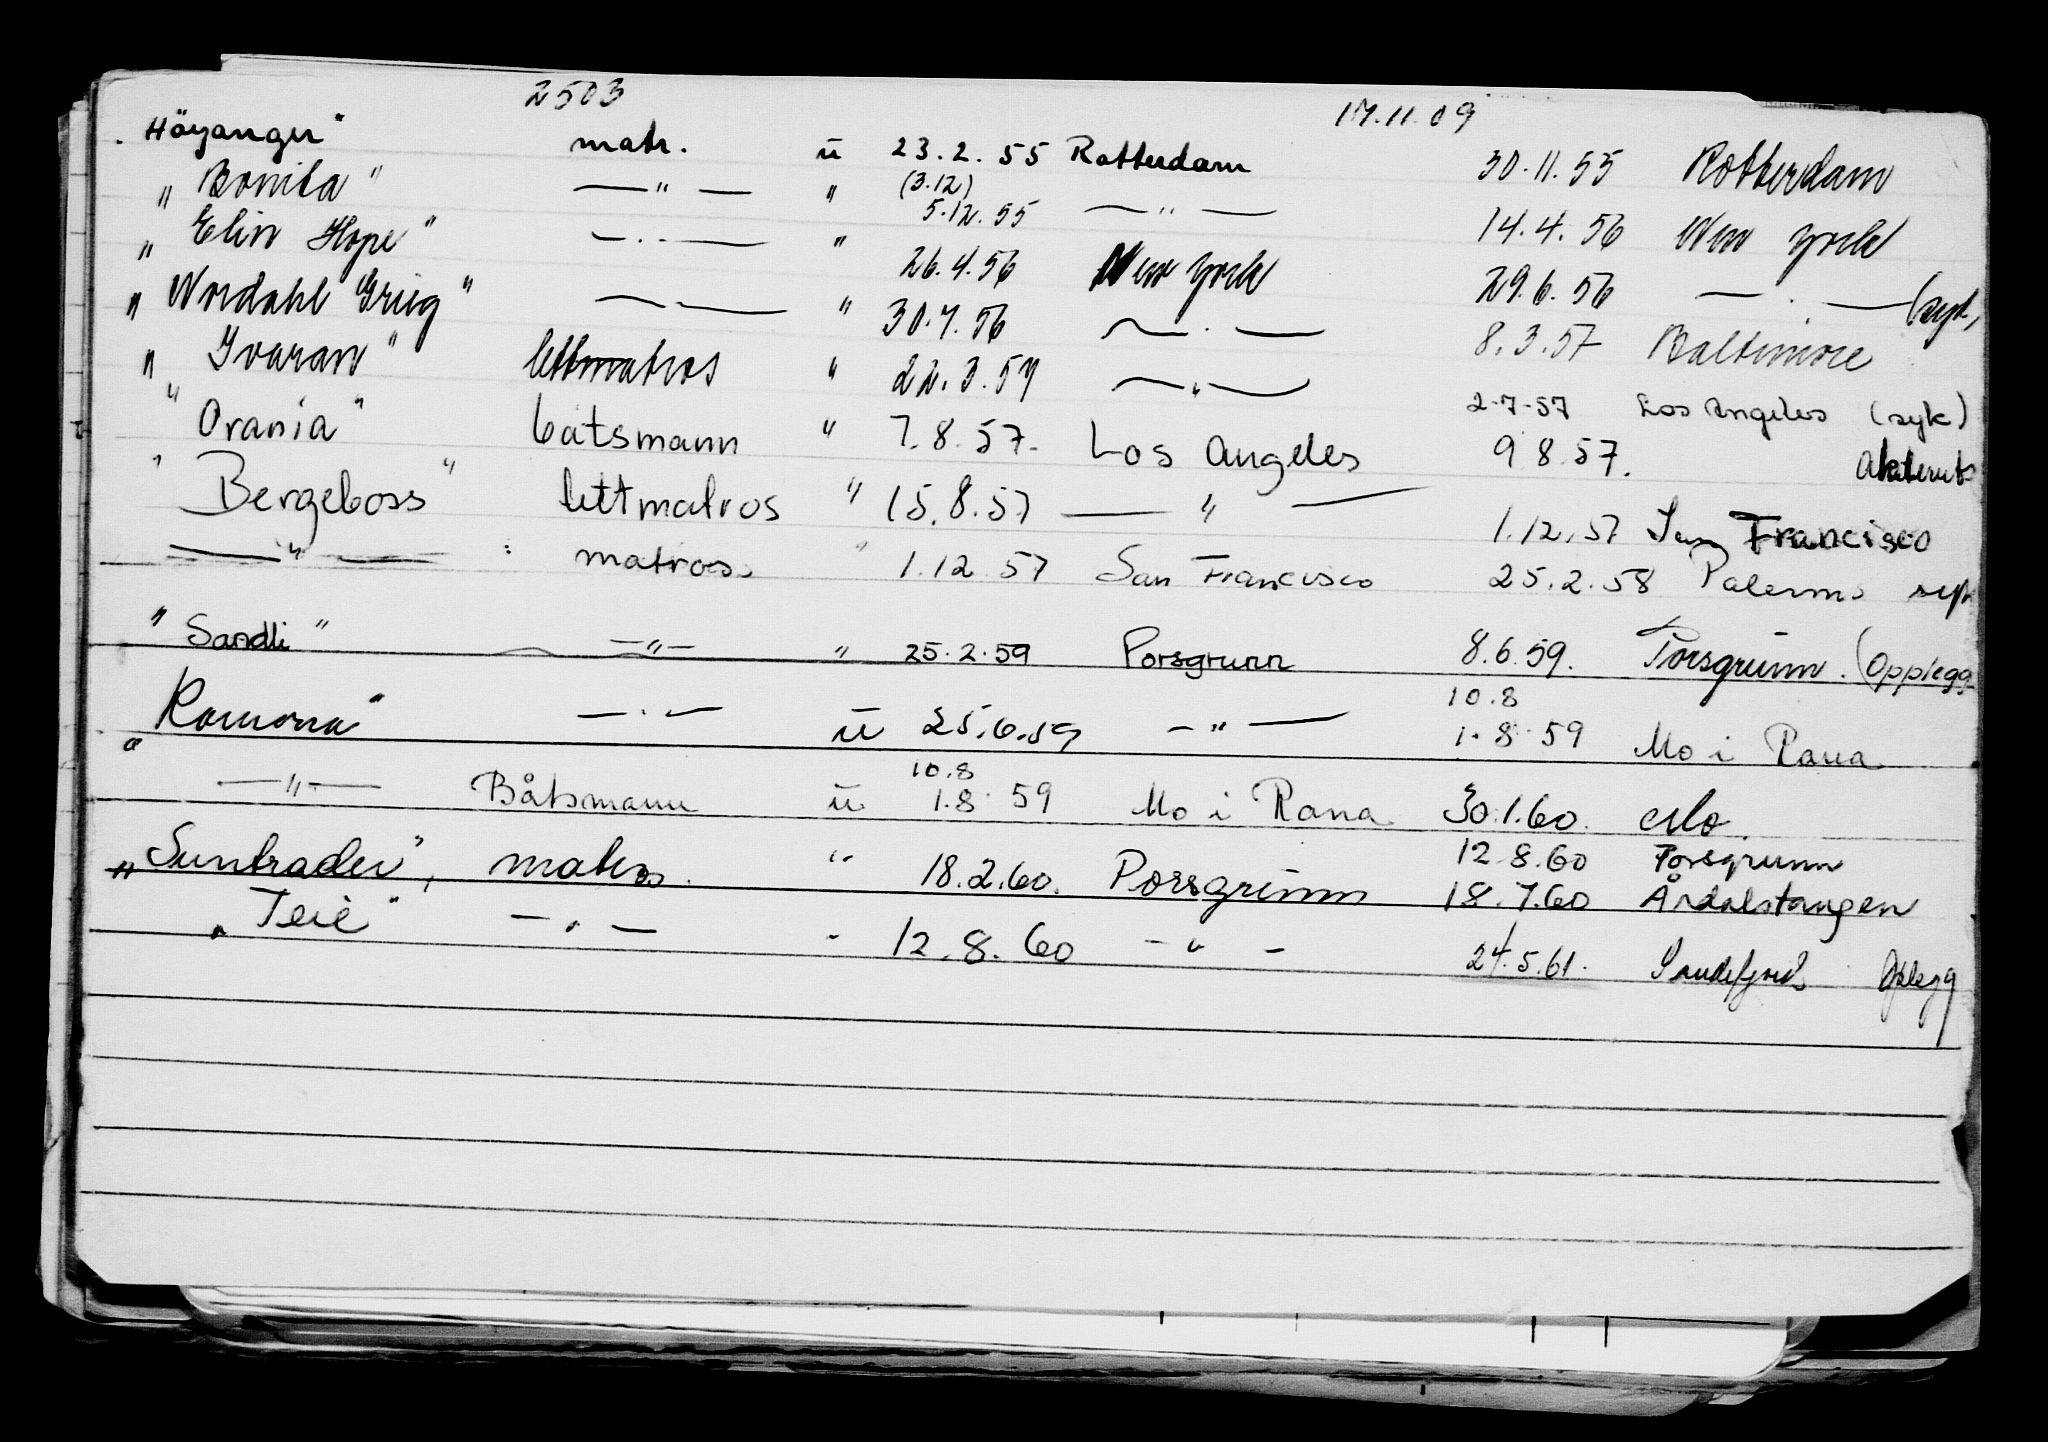 2503 17.11.09
"Höyanger" matr. ü 23.2.55 Rotterdam 30.11.55 Rotterdam
"Bonita" —"— " (3.12) 5.12.55 —"— 14.4.56 New York
"Elin Hope" —"— " 26.4.56 New York 29.6.56 —"— (syk)
"Nordahl Grieg" —"— " 30.7.56 —"— 8.3.57 Baltimore
"Ivaran" lettmatros " 22.3.57 —"— 2.7.57 Los Angeles (syk)
"Orania" båtsmann " 7.8.57. Los Angeles 9.8.57. Akterut
"Bergeboss" lettmatros " 15.8.57 —"— 1.12.57 San Francisco
—"— : matros " 1.12.57 San Francisco 25.2.58 Palermo syk
"Sandli" —"— " 25.2.59 Porsgrunn 8.6.59. Porsgrunn. (Opplegg
"Ramona" —"— ü 25.6.59 —"— 10.8 1.8.59 Mo i Rana
—"— Båtsmann ü 10.8 1.8.59 Mo i Rana 30.1.60. Oslo.
12.8.60 Porsgrunn
"Suntrader", matros. " 18.2.60. Porsgrunn 18.7.60 Årdalstangen
"Teie" —"— " 12.8.60 —"— 24.5.61. Sandefjord Oplegg